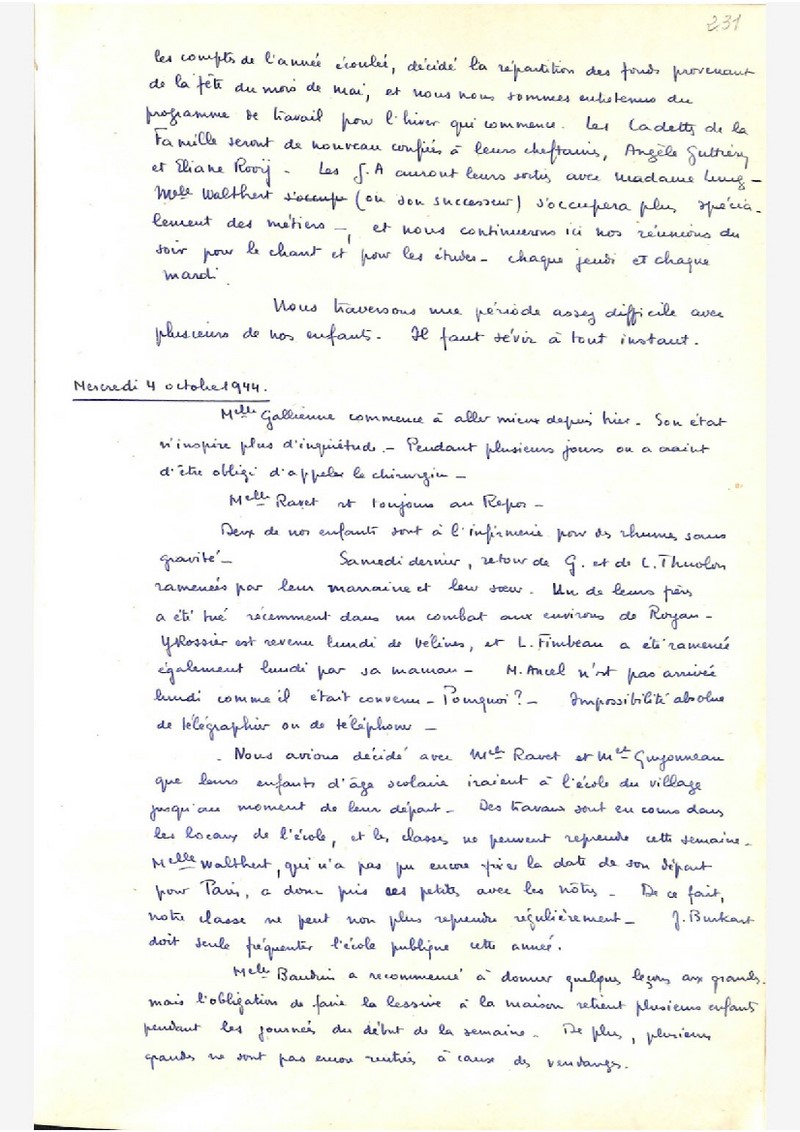 231
les comptes de l'année écoulée, décidé la répartition des fonds provenant
de la fête du mois de mai, et nous nous sommes entretenus du
programme de travail pour l'hiver qui commence. Les Cadettes de la
Famille seront de nouveau confiées à leurs cheftaines, Angèle
et Eliane Rooij - Les J.A auront leurs sorties avec madame Lung -
Melle Walthert s'occupe (ou son successeur) s'occupera plus spécia-
lement des métiers -, et nous continuerons ici nos réunions du
soir pour le chant et pour les études - chaque jeudi et chaque
mardi.
Nous traversons une période assez difficile avec
plusieurs de nos enfants. Il faut sévir à tout instant.
Mercredi 4 octobre 1944.
Melle Gallienne commence à aller mieux depuis hier. Son état
n'inspire plus d'inquiétude. - Pendant plusieurs jours on a craint
d'être obligé d'appeler le chirurgien -
Melle Ravet est toujours au Repos -
Deux de nos enfants sont à l'infirmerie pour des rhumes sans
gravité - Samedi dernier, retour de G. et de L. Thuolon
ramenées par leur marraine et leur sœur. Un de leurs frères
a été tué récemment dans un combat aux environs de Royan -
Y Rossier est revenu lundi de Vélines, et L. Fimbeau a été ramenée
également lundi par sa maman - M. Ancel n'est pas arrivée
lundi comme il était convenu - Pourquoi ? - Impossibilité absolue
de télégraphier ou de téléphoner -
Nous avions décidé avec Melle Ravet et Melle Guyonneau
que leurs enfants d'âge scolaire iraient à l'école du village
jusqu'au moment de leur départ - Des travaux sont en cours dans
les locaux de l'école, et les classes ne peuvent reprendre cette semaine -
Melle Walthert, qui n'a pas pu encore fixer la date de son départ
pour Paris, a donc pris ces petits avec les nôtres - De ce fait,
notre classe ne peut non plus reprendre régulièrement - J. Burkart
doit seule fréquenter l'école publique cette année.
Melle Baudrin a recommencé à donner quelques leçons aux grands.
mais l'obligation de faire la lessive à la maison retient plusieurs enfants
pendant les journées du début de la semaine - De plus, plusieurs
grandes ne sont pas encore rentrées à cause des vendanges.